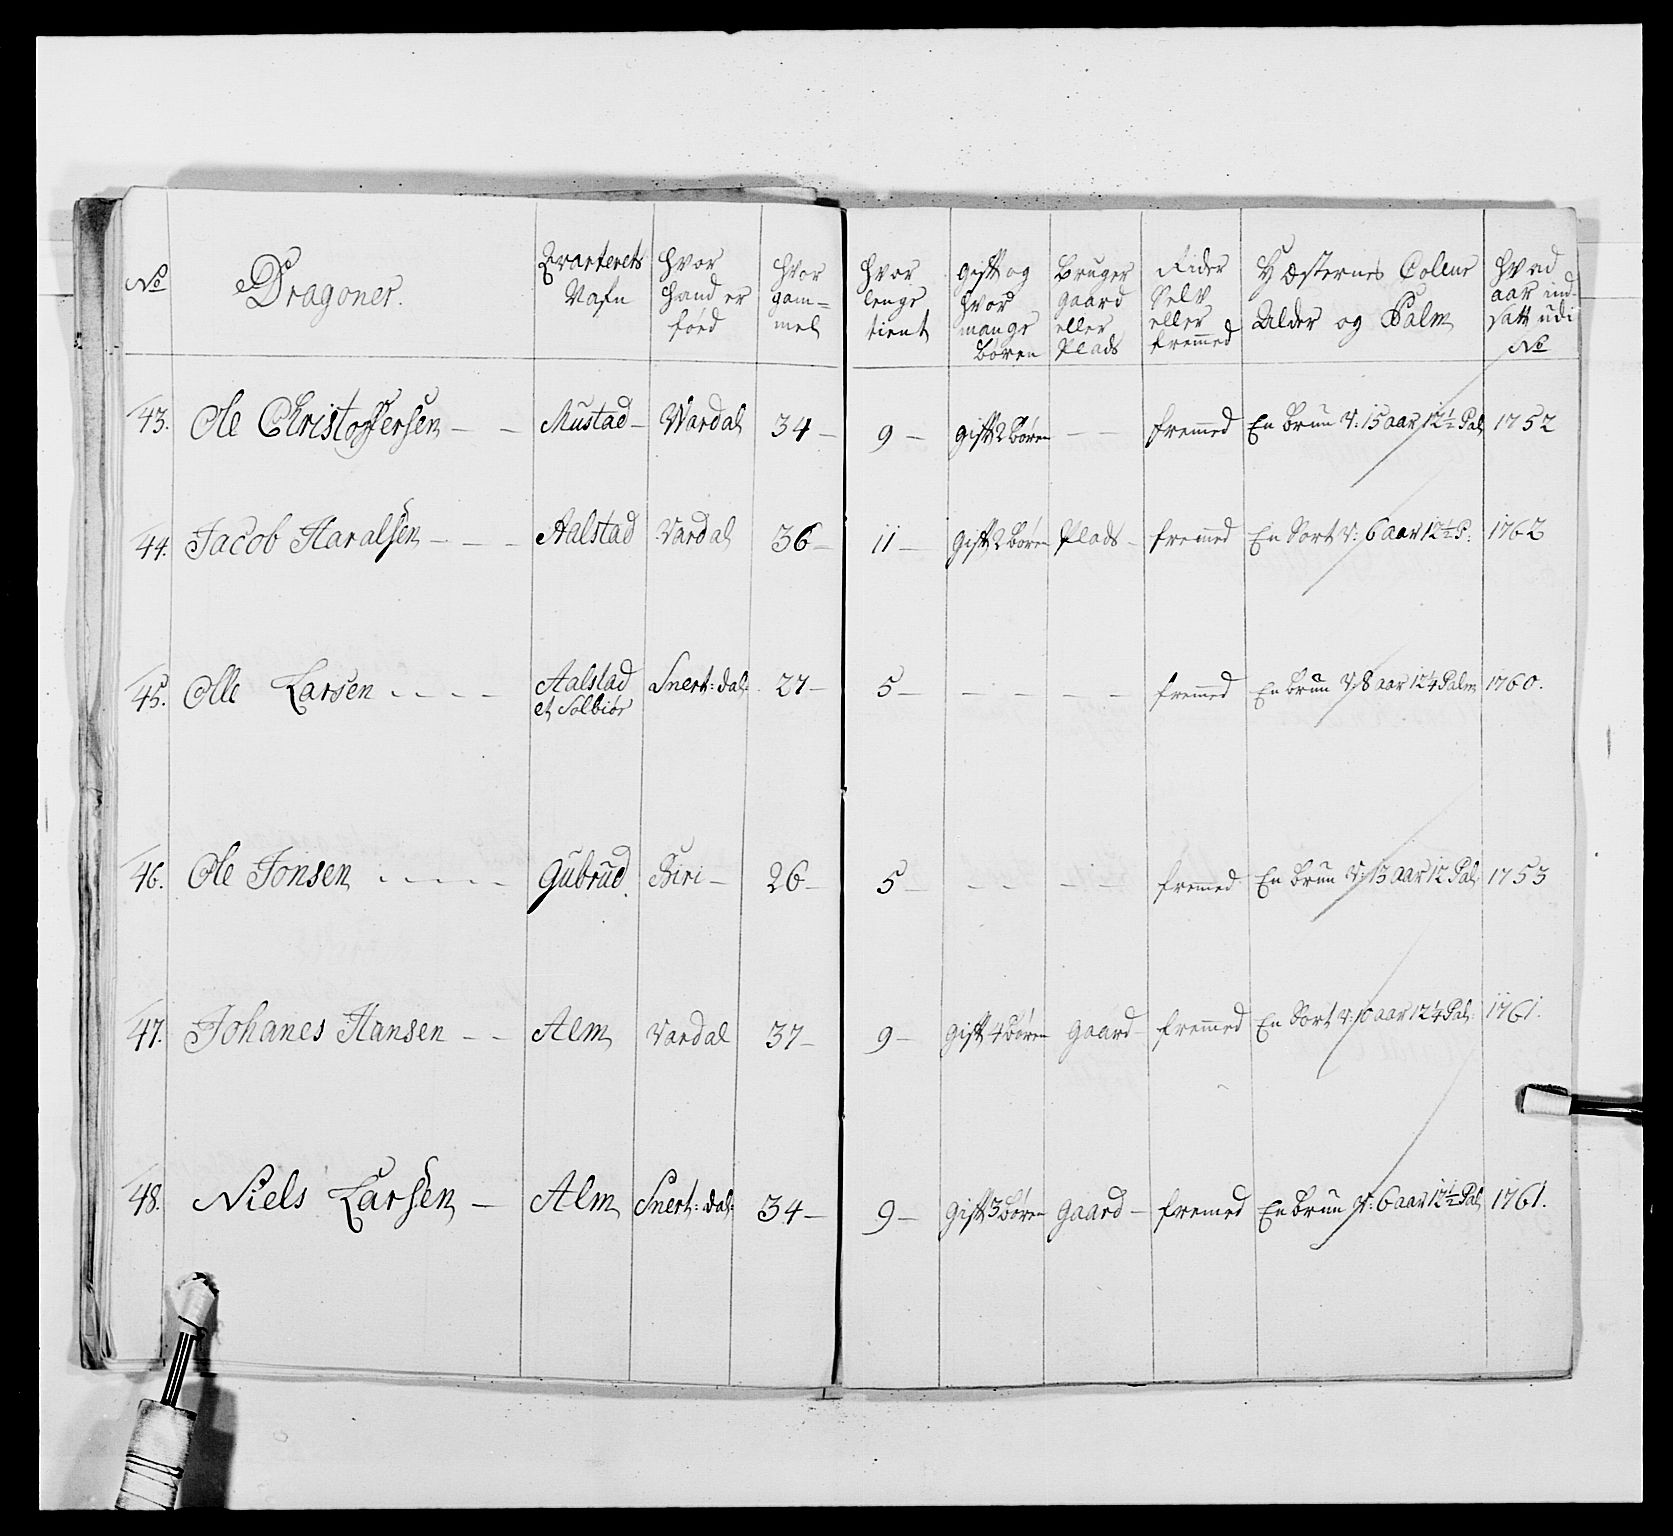 No Dragoner. Qvarterets Nafn Hvor Hand er föed Hvor gam= mel Hvor lenge tient Gift og hvor mange Bören Bruger gaard eller Plads Rider Selv eller fremmed Hæsternes Coleur Alder og Palm Hvad aar ind satt udi No
43. Ole Christoffersen — — Mustad — Wardal 34 — 9 — gift 2 Bören — — fremmed En brun V: 15 aar 12½ Pal 1752
44. Jacob Haralsen — — — Aalstad Vardal 36 — 11 — gift 2 Bören Plads — fremmed En Sort V: 6 aar 12½ P. 1762
45. Olle Larsen - - - - Aalstad et Solbiör Snert: dal: 27 — 5 — — — — — fremmed En brun V 8 aar 12¼ Palm 1760.
46. Ole Jonsen - - - - - Gubrud Biri — 26 — 5 — — — — — fremed En brun V: 13 aar 12 Pal 1753
47. Johanes Hansen — — Alm Vardal 37 — 9 — Gift 4 Bören gaard — fremmed En Sort V: 10 aar 12¼ Pal. 1761.
48. Niels Larsen — Alm Snert: dal: 34 — 9 — Gift 3 Bören gaard — fremed En brun V: 6 aar 12½ Pal 1761.